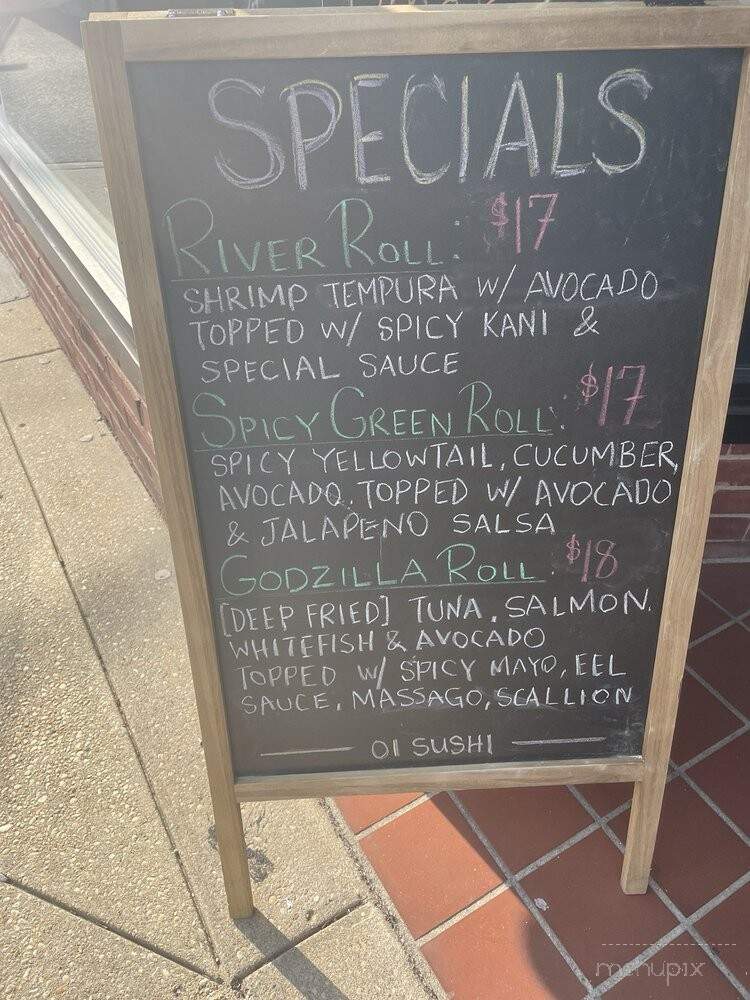 SPECIALS
RIVER ROLL: $17
SHRIMP TEMPURA W/ AVOCADO
TOPPED W/ SPICY KANI &
SPECIAL SAUCE
SPICY GREEN ROLL: $17
SPICY YELLOWTAIL, CUCUMBER,
AVOCADO. TOPPED W/ AVOCADO
& JALAPENO SALSA
GODZILLA ROLL: $18
[DEEP FRIED] TUNA, SALMON.
WHITEFISH & AVOCADO
TOPPED W/ SPICY MAYO, EEL
SAUCE, MASSAGO, SCALLION
OI SUSHI
menupix